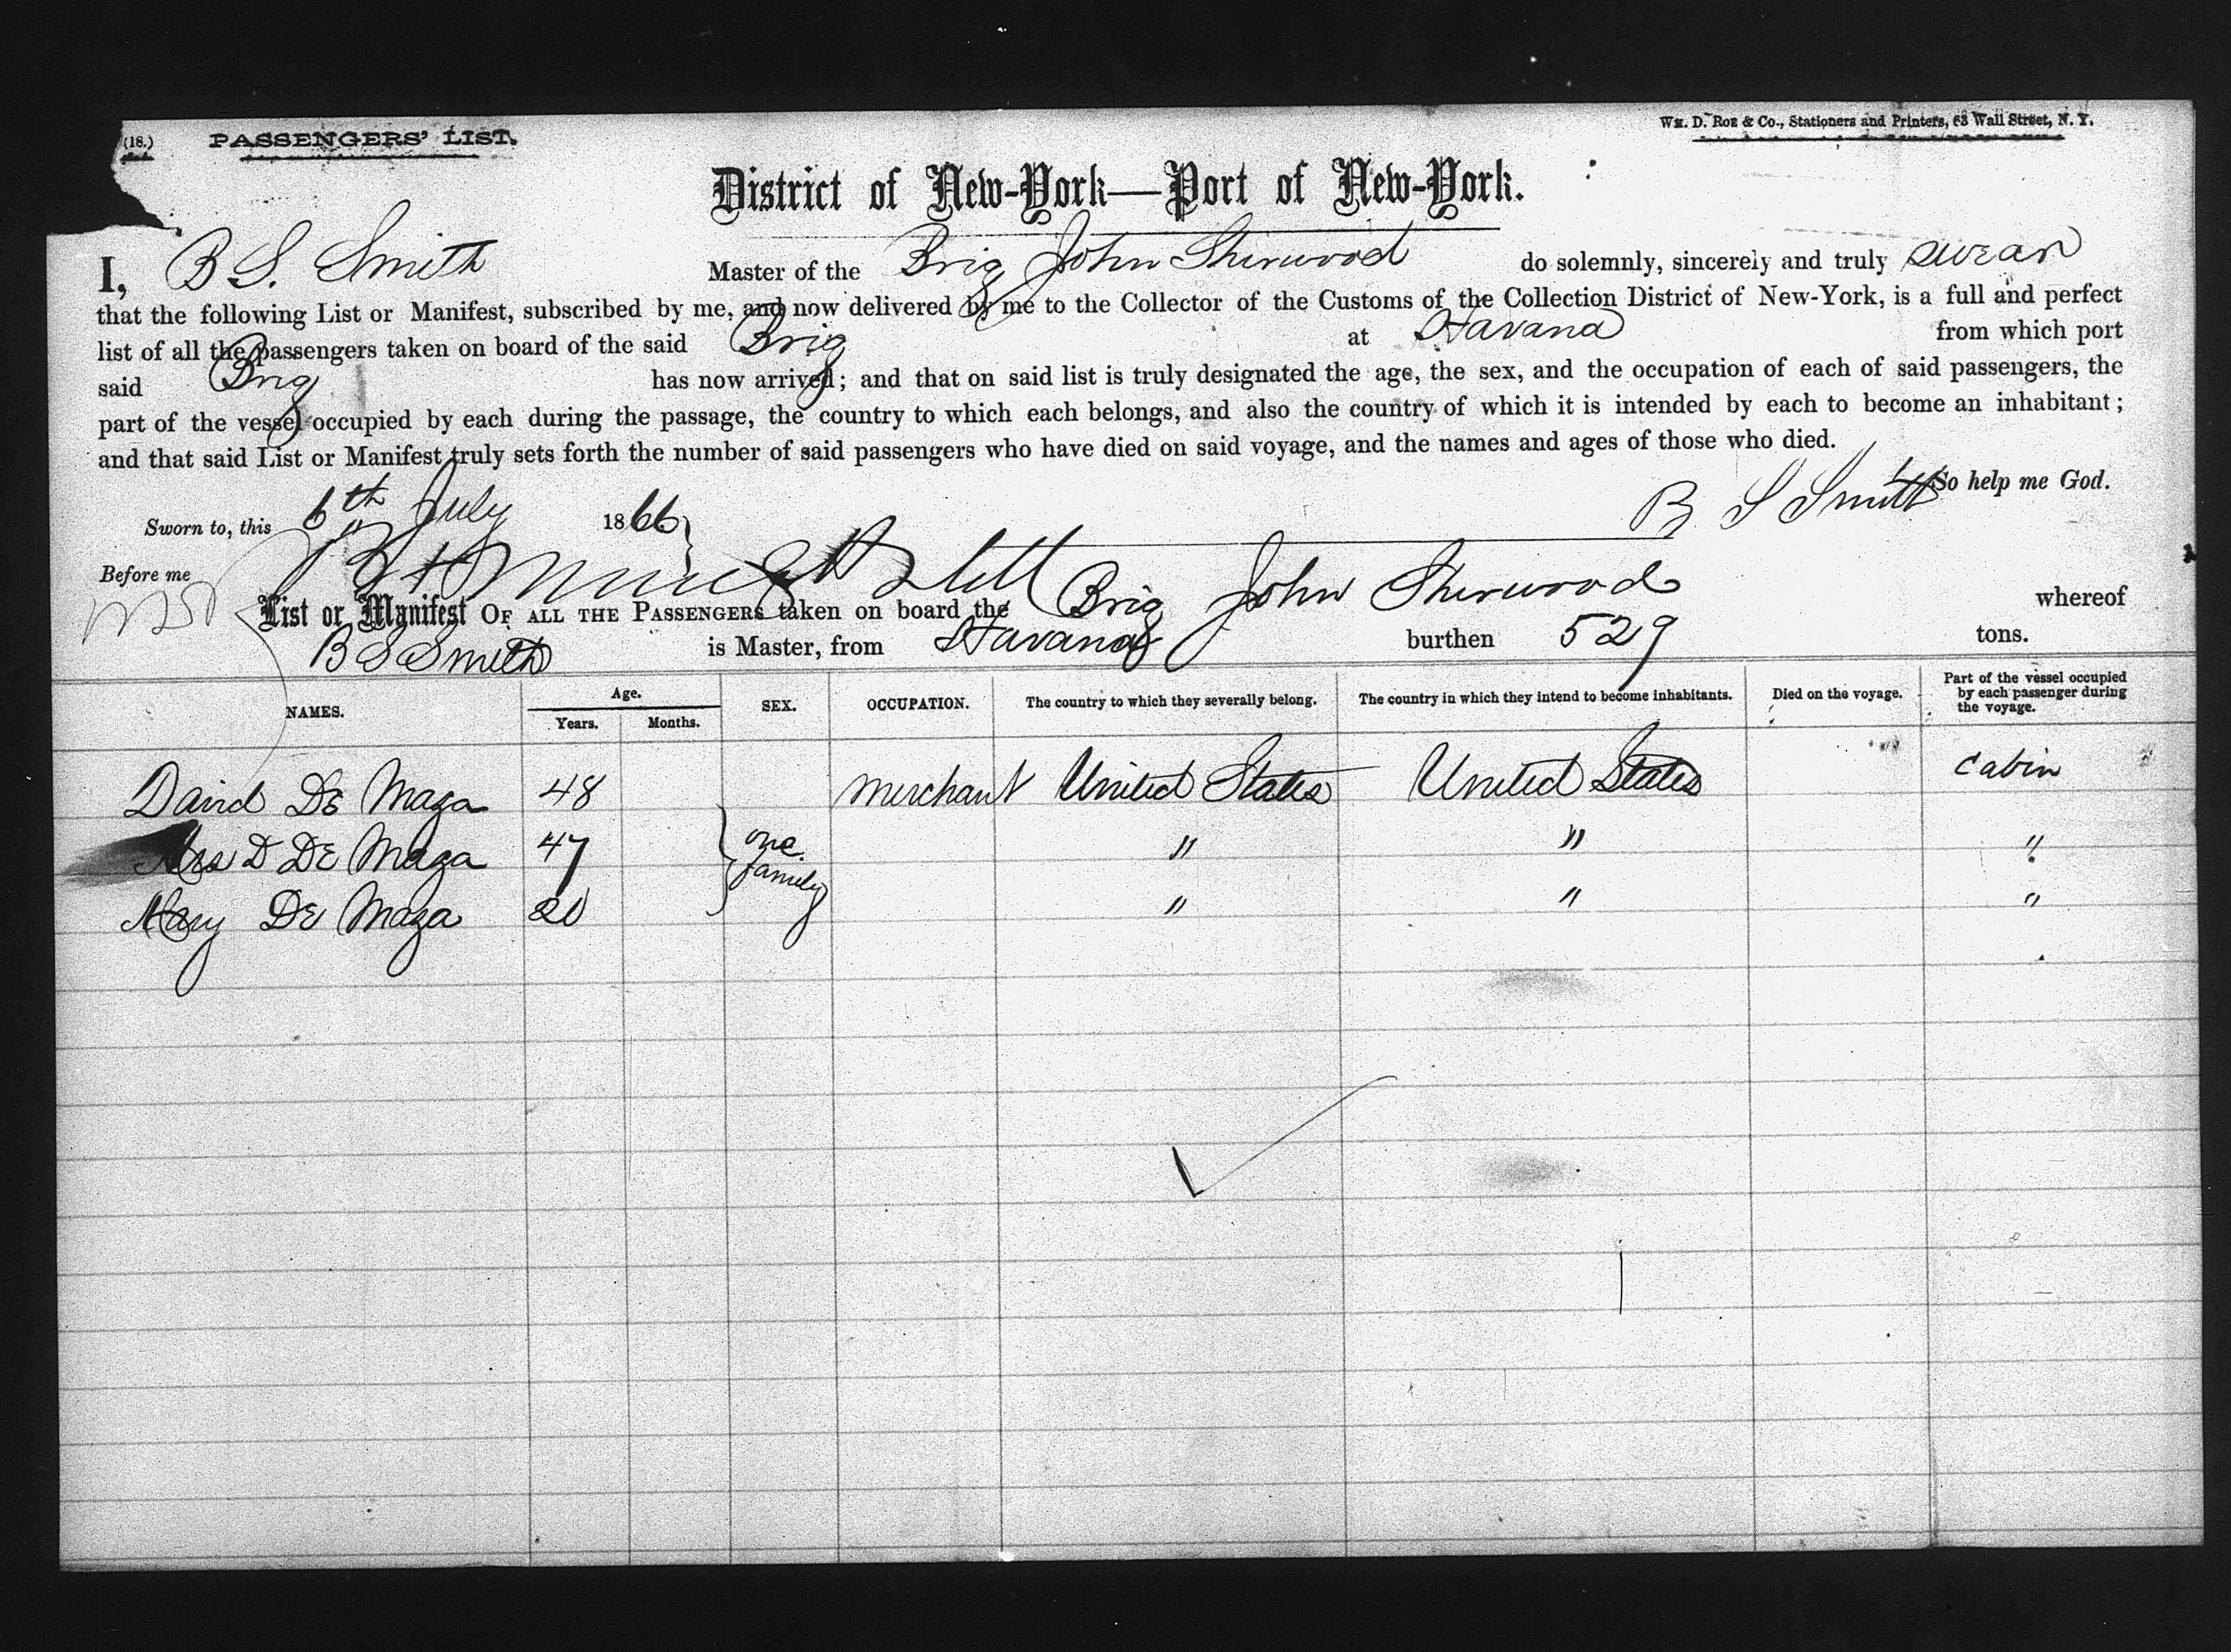 (18.) PASSENGERS' LIST.
Wm. D. Roe & Co., Stationers and Printers, 63 Wall Street, N. Y.
District of New-York—Port of New-York.
I, B S. Smith Master of the Brig John Sherwood do solemnly, sincerely and truly swear
that the following List or Manifest, subscribed by me, and now delivered by me to the Collector of the Customs of the Collection District of New-York, is a full and perfect
list of all the passengers taken on board of the said Brig at Havana from which port
said Brig has now arrived; and that on said list is truly designated the age, the sex, and the occupation of each of said passengers, the
part of the vessel occupied by each during the passage, the country to which each belongs, and also the country of which it is intended by each to become an inhabitant;
and that said List or Manifest truly sets forth the number of said passengers who have died on said voyage, and the names and ages of those who died.
B S Smith So help me God.
Sworn to, this 6th July 1866
Before me
List or Manifest OF ALL THE PASSENGERS taken on board the Brig John Sherwood whereof
B S Smith is Master, from Havana burthen 529 tons.
NAMES. Age. Years. Months. SEX. OCCUPATION. The country to which they severally belong. The country in which they intend to become inhabitants. Died on the voyage. Part of the vessel occupied by each passenger during the voyage.
David De Maza 48 Merchant United States United States Cabin
Mrs D De Maza 47 one family " " "
Mary De Maza 20 " " "